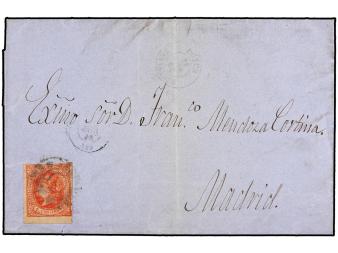 Exĩno Sõr D. Fran.co Mendoza Cortina.
Madrid.